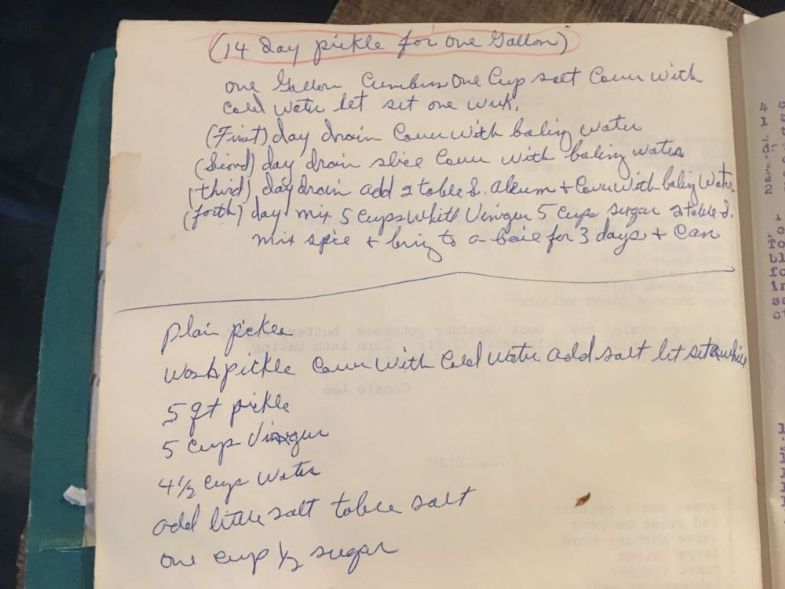 (14 Day pickle for One Gallon)
one Gallon Cumbers One Cup salt Cover With
Cold Water let set one week.
(First) day drain Cover With boling Water
(Second) day drain slice Cover with boling water
(third) day drain add 2 table S. Aleum + Cover With boling Water
(forth) day mix 5 Cups Whitt Vinger 5 Cups sugar 2 table S.
mix spice + bring to a boie for 3 days + Can
plain pickle
Wash pickle Cover With Cold Water add salt let set a while
5 qt pickle
5 cup Vinegur
4 1/2 cups Water
add little salt table salt
one cup 1/2 sugar
Connie Lee